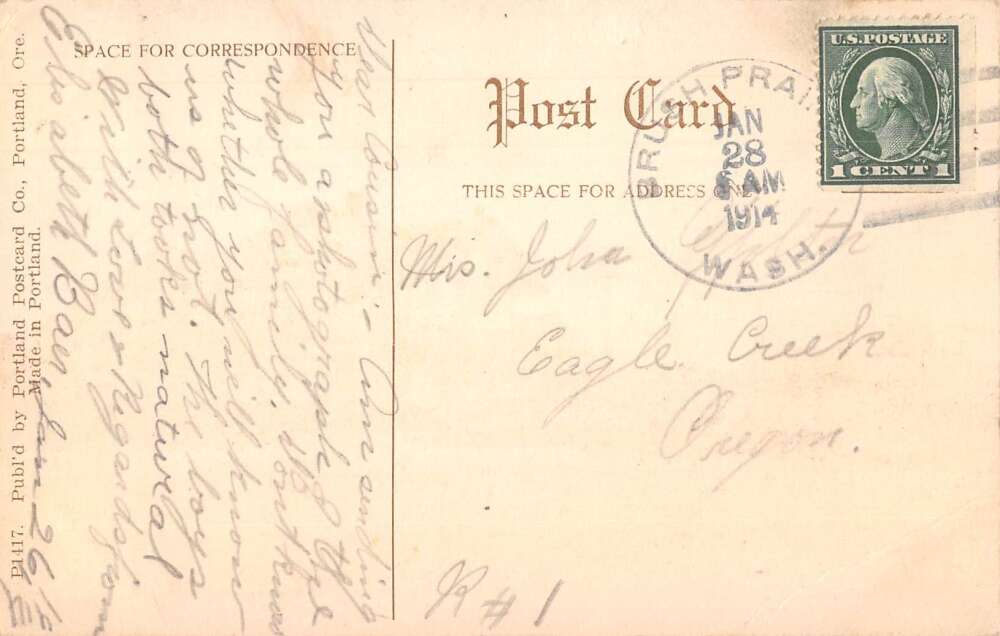 SPACE FOR CORRESPONDENCE
Dear Cousin:- Am sending
you a photograph of the
whole family. Dont know
whether you will know
us or not. The boys
both looks natural
With Love & Regards from
Elisabeth Baer, Jan-26/14
P1417. Publ'd by Portland Postcard Co., Portland, Ore.
Made in Portland.
Post Card
THIS SPACE FOR ADDRESS ONLY
BRUSH PRAI
JAN
28
AM
1914
WASH.
U.S. POSTAGE
1 CENT 1
Mrs. John
Eagle Creek
Oregon.
R # 1